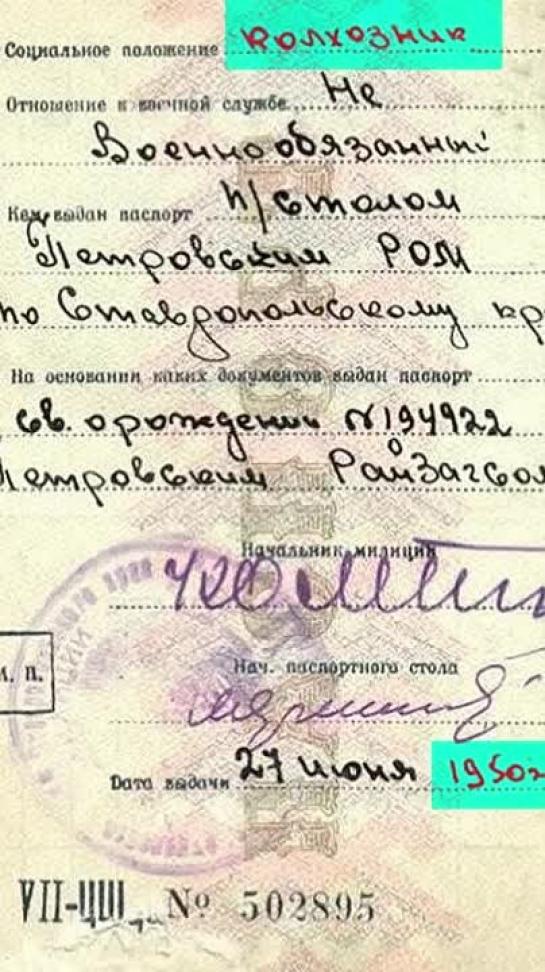 Социальное положение колхозник
Отношение к военной службе Не
Военнообязанный
Кем выдан паспорт п/столом
Петровским РОМ
по Ставропольскому кр
На основании каких документов выдан паспорт
св. о рождении №194922
Петровским РайЗагсом
Начальник милиции
Нач. паспортного стола
М. П.
Дата выдачи 27 июня 1950г
VII-ЦШ № 502895